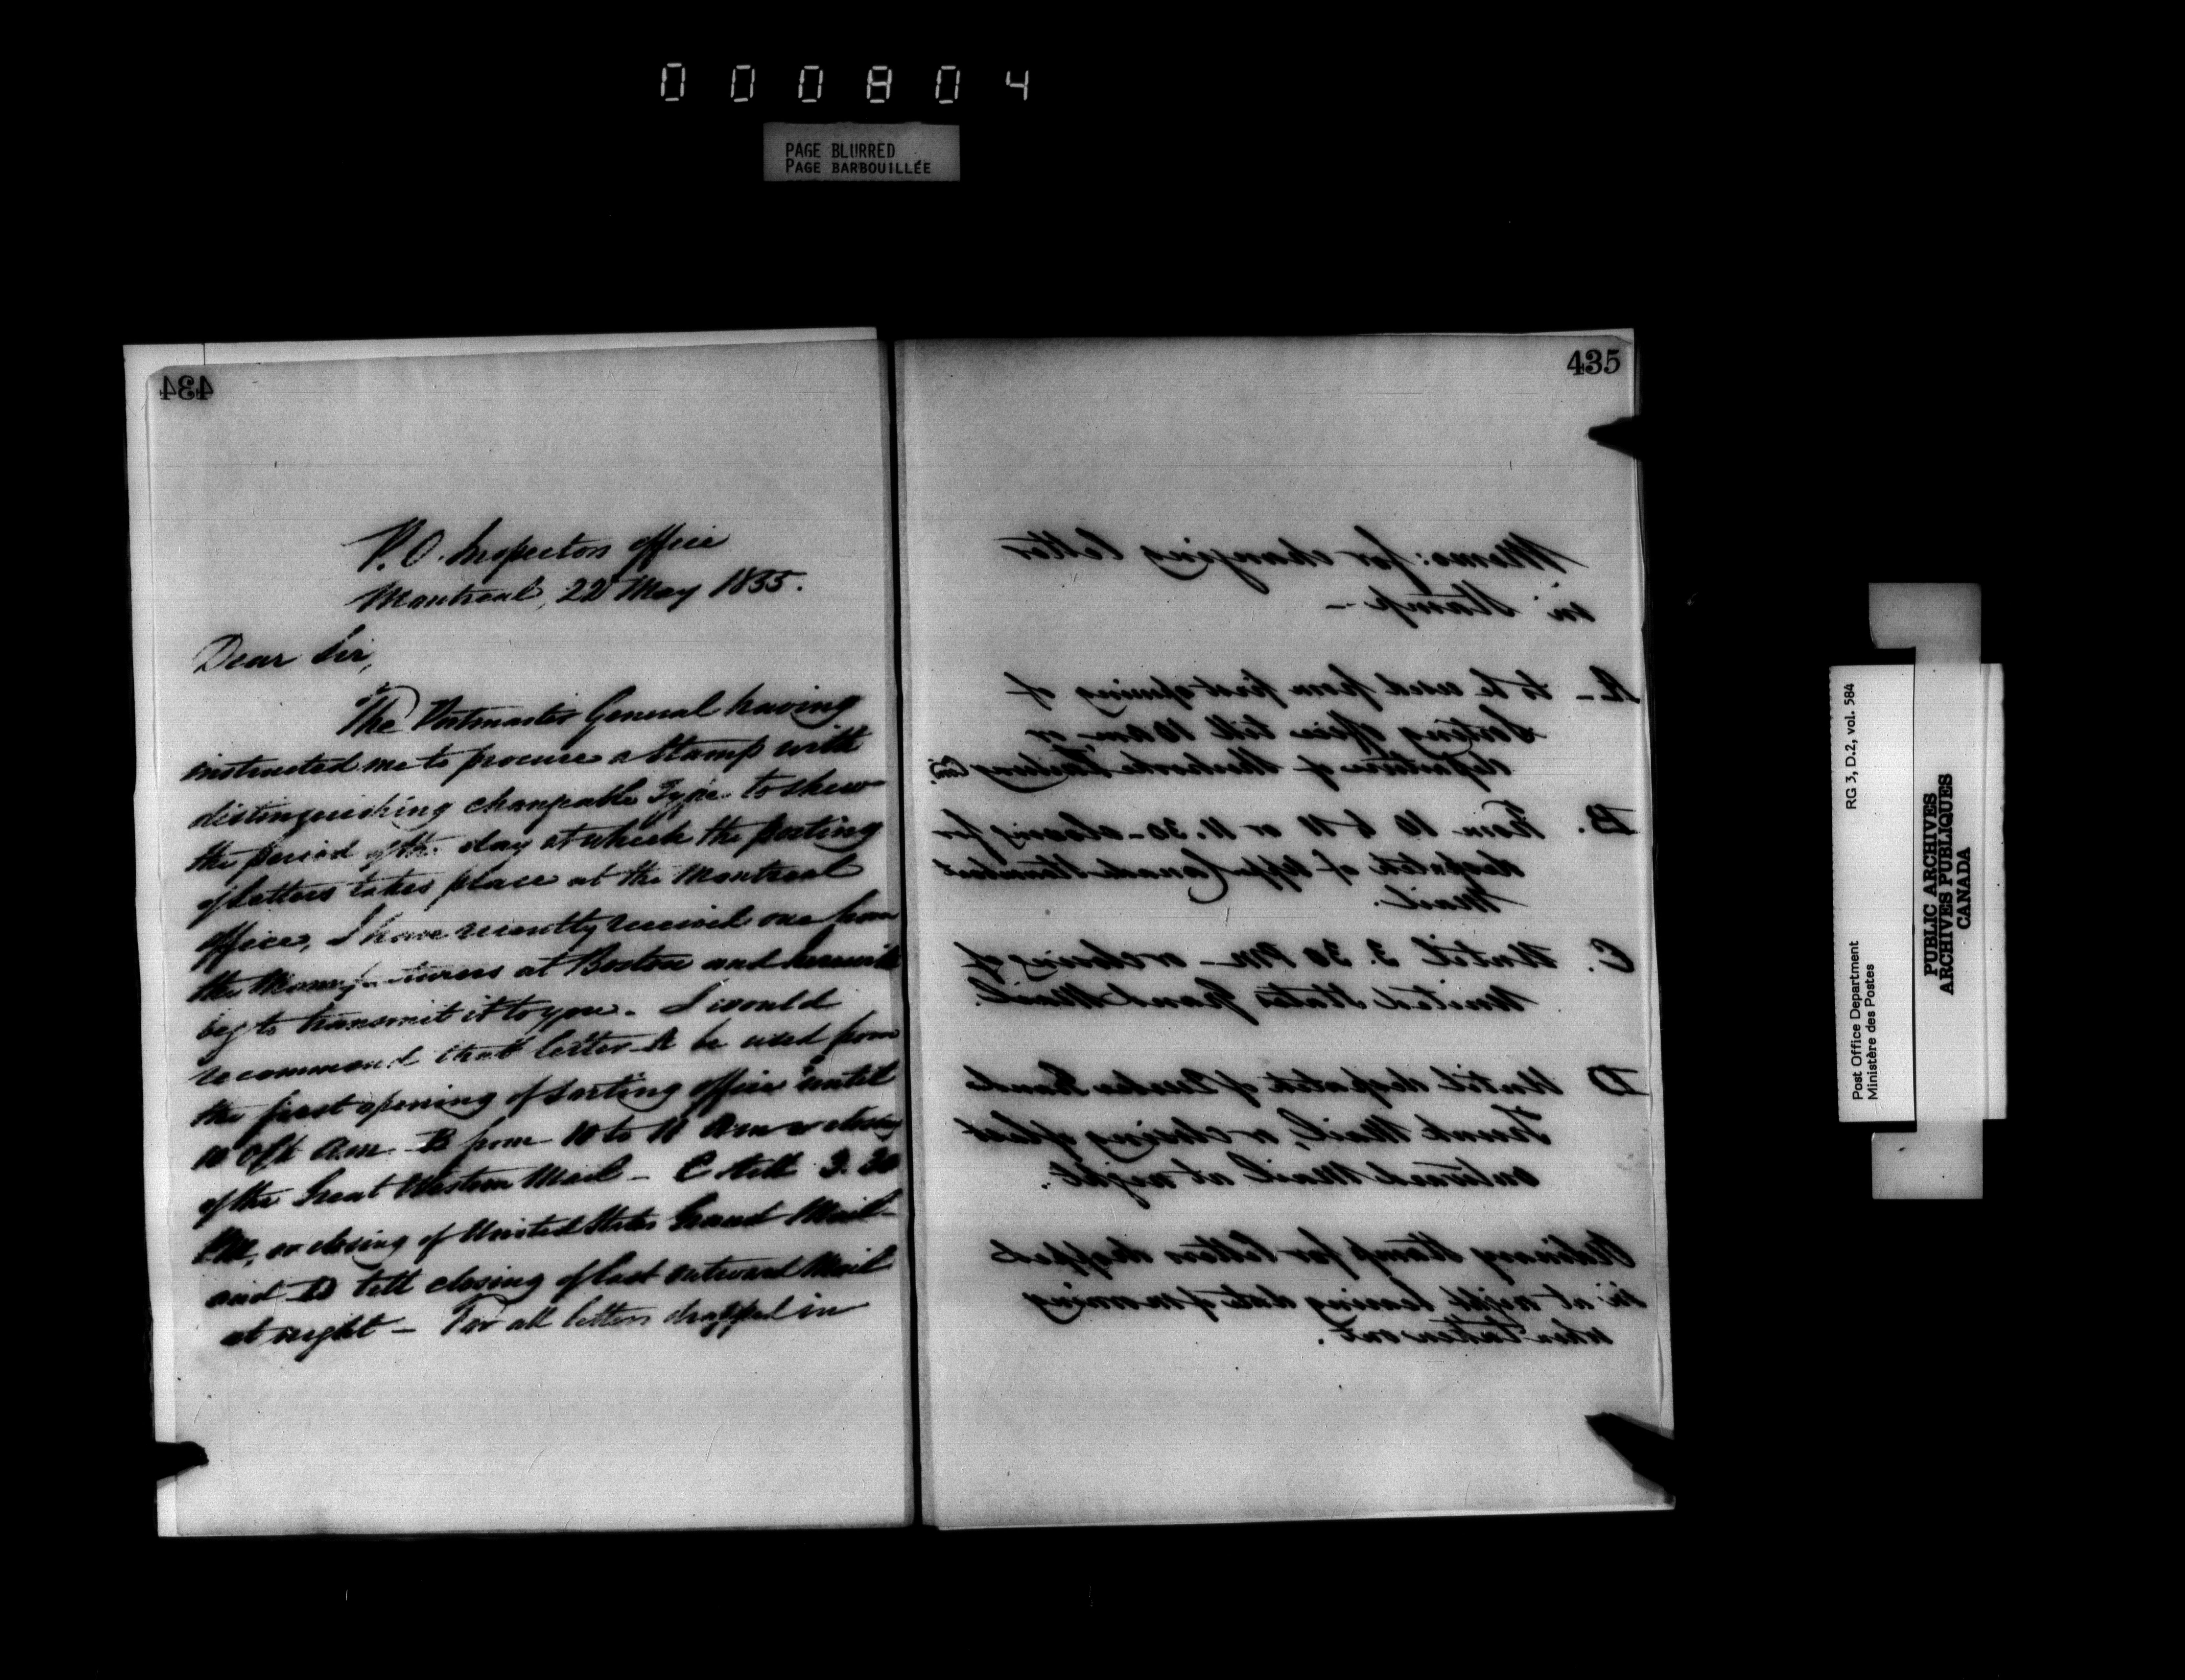 000804
PAGE BLURRED
PAGE BARBOUILLÉE
434
P. O. Inspectors office
Montreal, 22 May 1855.
Dear Sir,
The Postmaster General having
instructed me to procure a Stamp with
distinguishing changeable Type to shew
the period of the day at which the posting
of letters takes place at the Montreal
office, I have recently received one from
the Manufacturers at Boston and herewith
beg to transmit it to you. I would
recommend that letter A be used from
the first opening of sorting office until
10 o'Clk am B from 10 to 11 am or closing
of the Great Western Mail - C till 3.30
PM, or closing of United States Grand Mail -
and D till closing of last outward Mail
at night - For all letters dropped in
435
Memo: for changing letter
in Stamp -
A - to be used from first opening of
Sorting office till 10 am, or
departure of Railway
B. From 10 to 11 or 11.30 - closing for
despatch of Upper Canada Steamboat
Mail.
C. Until 3.30 PM - or closing of
United States Grand Mail.
D Until despatch of Quebec Grand
Trunk Mail, or closing of last
outward Mail at night.
Ordinary Stamp for letters dropped
in at night bearing date of morning
when taken out.
Post Office Department
Ministère des Postes
RG 3, D.2, vol. 584
PUBLIC ARCHIVES
ARCHIVES PUBLIQUES
CANADA